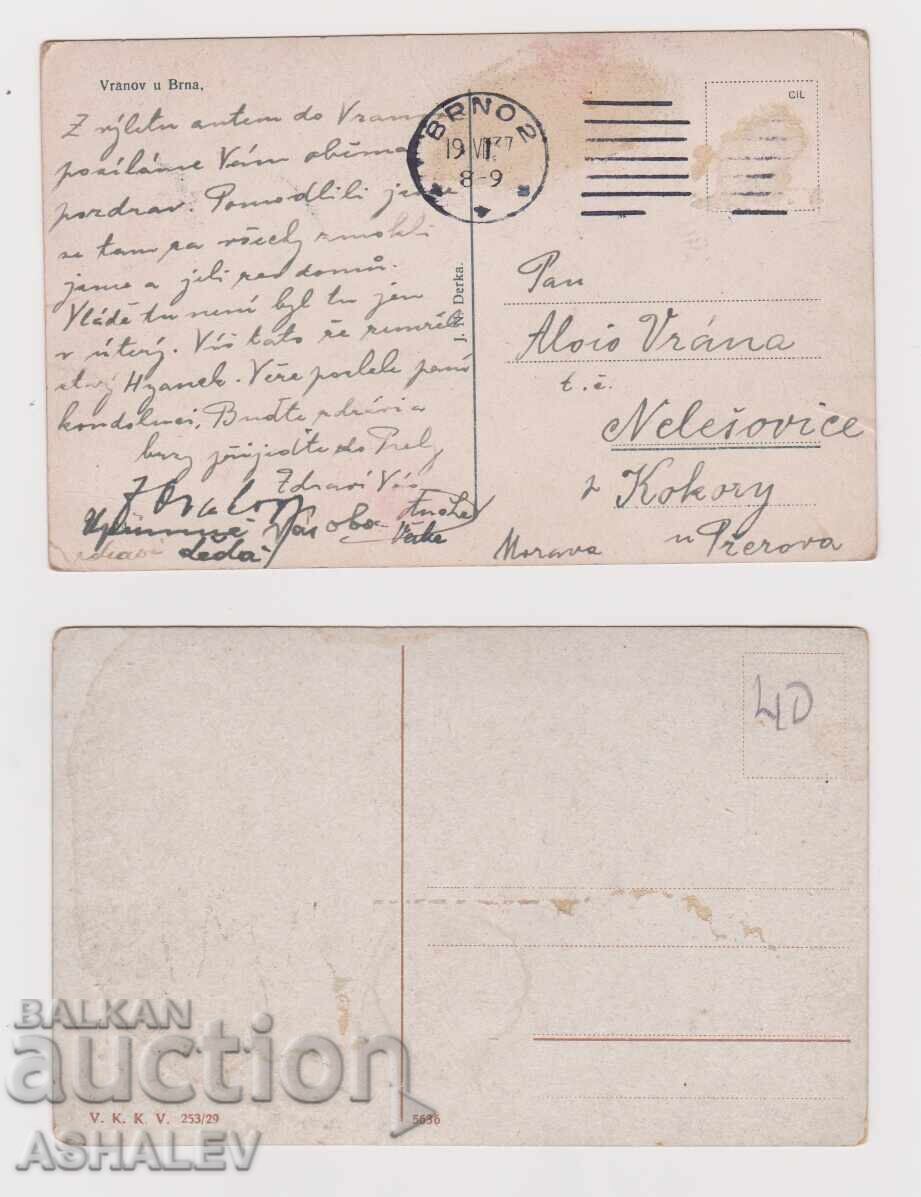 Vranov u Brna,
Z výletu autem do Vrano
posíláme Vám oběma
pozdrav. Pomodlili jsme
se tam za všecky zmokli
jsme a jeli zas domů.
Vládě tu není byl tu jen
v úterý. Víš tato že zemřel
starý Hyanek. Věře pošlete paní
kondolenci. Buďte zdrávi a
brzy přijeďte do
Zdraví Vás
Upřimně Vás oba
zdraví Leda
J. N. Derka.
BRNO 2
19 VII 37
8-9
CIL
Pan
Alois Vrána
t. č.
Nelešovice
z Kokory
Morava u Přerova
40
V. K. K. V. 253/29
5636
BALKAN
auction
ASHALEV